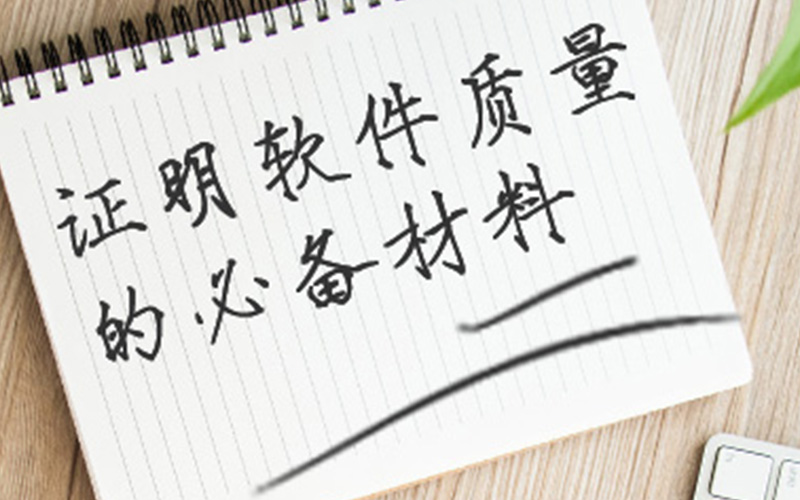 证明软件质量
的必备材料